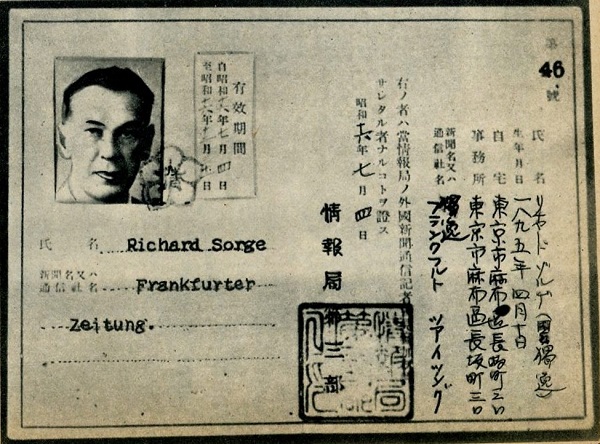 第
46
號
氏名 リチャード ゾルゲ
生年月日 一八九五年四月十日
自宅 東京市麻布區長坂町三〇
事務所 東京市麻布區長坂町三〇
新聞名又ハ
通信社名
獨逸
フランクフルト ツアイツング
右ノ者ハ當情報局ノ外國新聞通信記者
サレタル者ナルコトヲ證ス
昭和十六年七月四日
情報局第三部
有效期間
自昭和十六年七月四日
至昭和
氏名 Richard Sorge
新聞名又ハ
通信社名
Frankfurter
Zeitung.